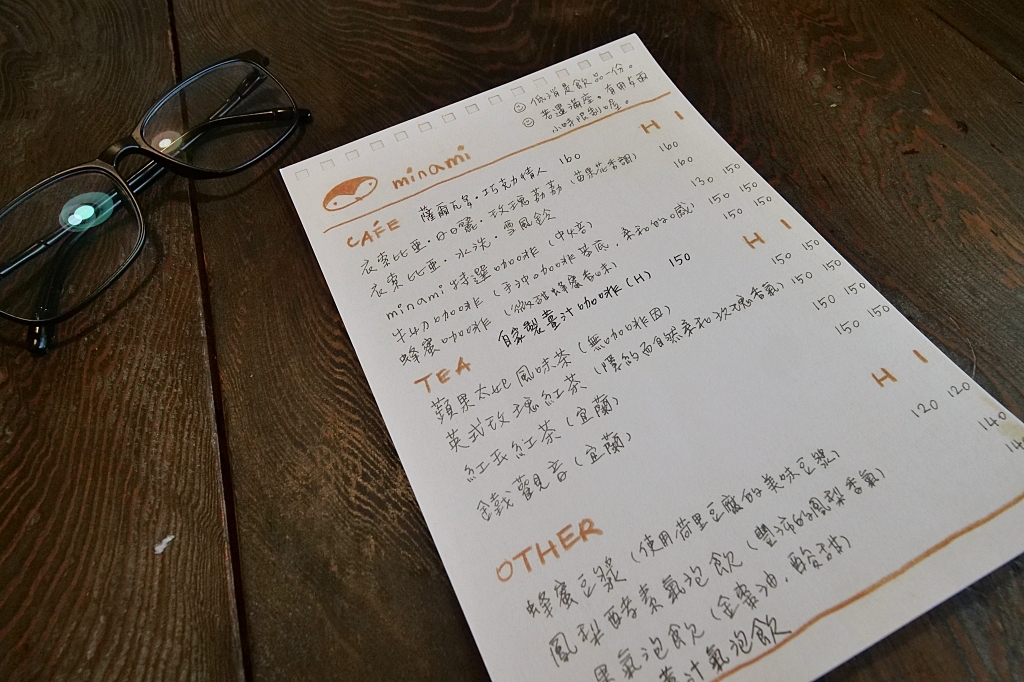 ☺ 低消是飲品一份。
☺ 若遇滿座。有用餐兩
小時限制喔。
minami
H I
CAFÉ
薩爾瓦多.巧克力情人 160
衣索比亞.日曬.玫瑰荔荔 (苗果花香調) 160
衣索比亞.水洗.雪風鈴 160
minami特選咖啡 (中焙) 130 150
牛奶咖啡 (手沖咖啡基底,柔和的口感) 150 150
蜂蜜咖啡 (微甜蜂蜜香味) 150 150
自家製薑汁咖啡 (H) 150
TEA H I
蘋果太妃風味茶 (無咖啡因) 150 150
英式玫瑰紅茶 (優雅而自然柔和玫瑰香氣) 150 150
紅玉紅茶 (宜蘭) 150 150
金萱觀音 (宜蘭) 150 150
OTHER H I
蜂蜜豆漿 (使用荷里豆腐的美味豆漿) 120 120
鳳梨酵素氣泡飲 (豐沛的鳳梨香氣) 140
果氣泡飲 (金棗油,酸甜) 14
薑汁氣泡飲